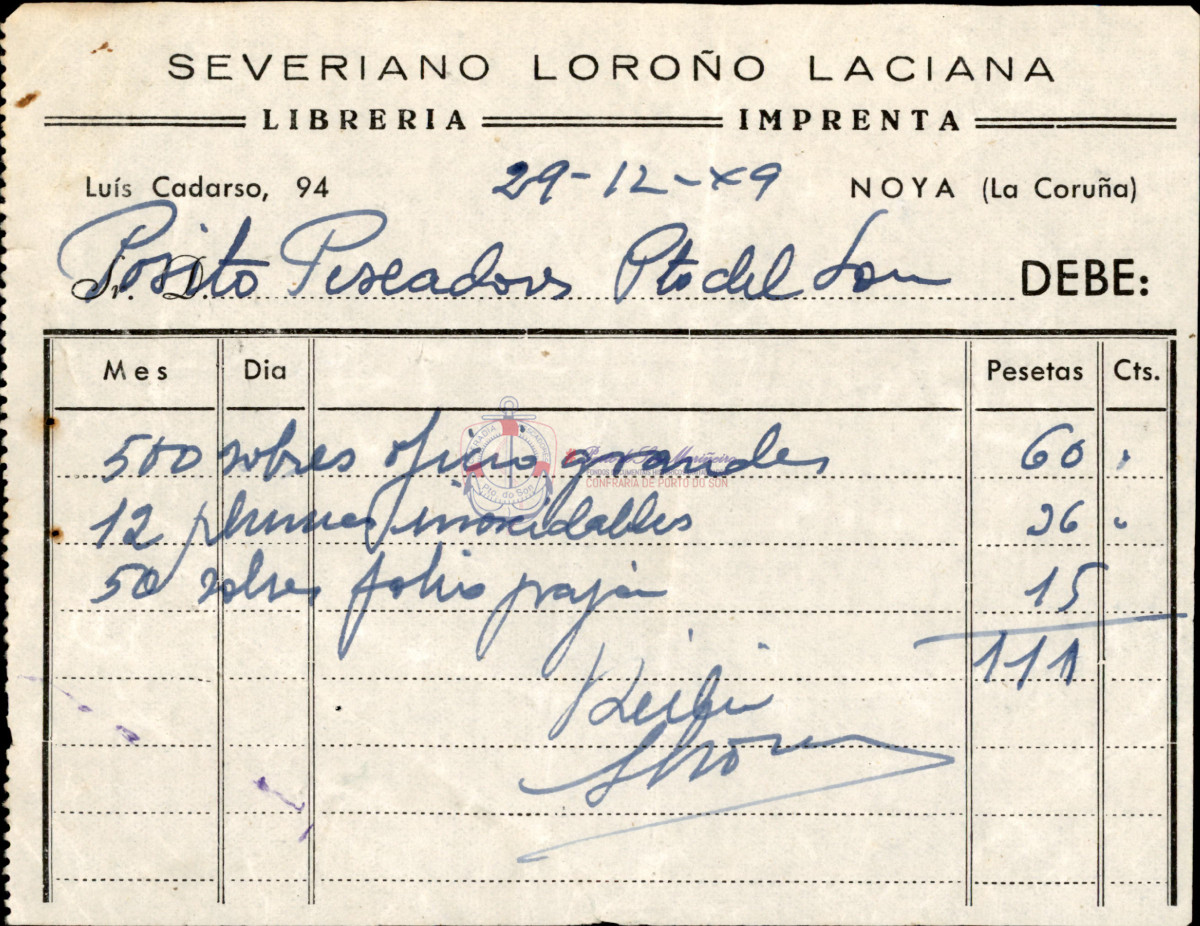 SEVERIANO LOROÑO LACIANA
LIBRERIA IMPRENTA
Luís Cadarso, 94 29-12-49 NOYA (La Coruña)
Sr. D. Posito Pescadores Pto del Son DEBE:
Mes Dia Pesetas Cts.
500 sobres oficio grandes 60 .
12 plumas inoxidables 36 .
50 sobres folio 15
111
Recibí
CONFRARIA DE PORTO DO SON
Pto. do Son